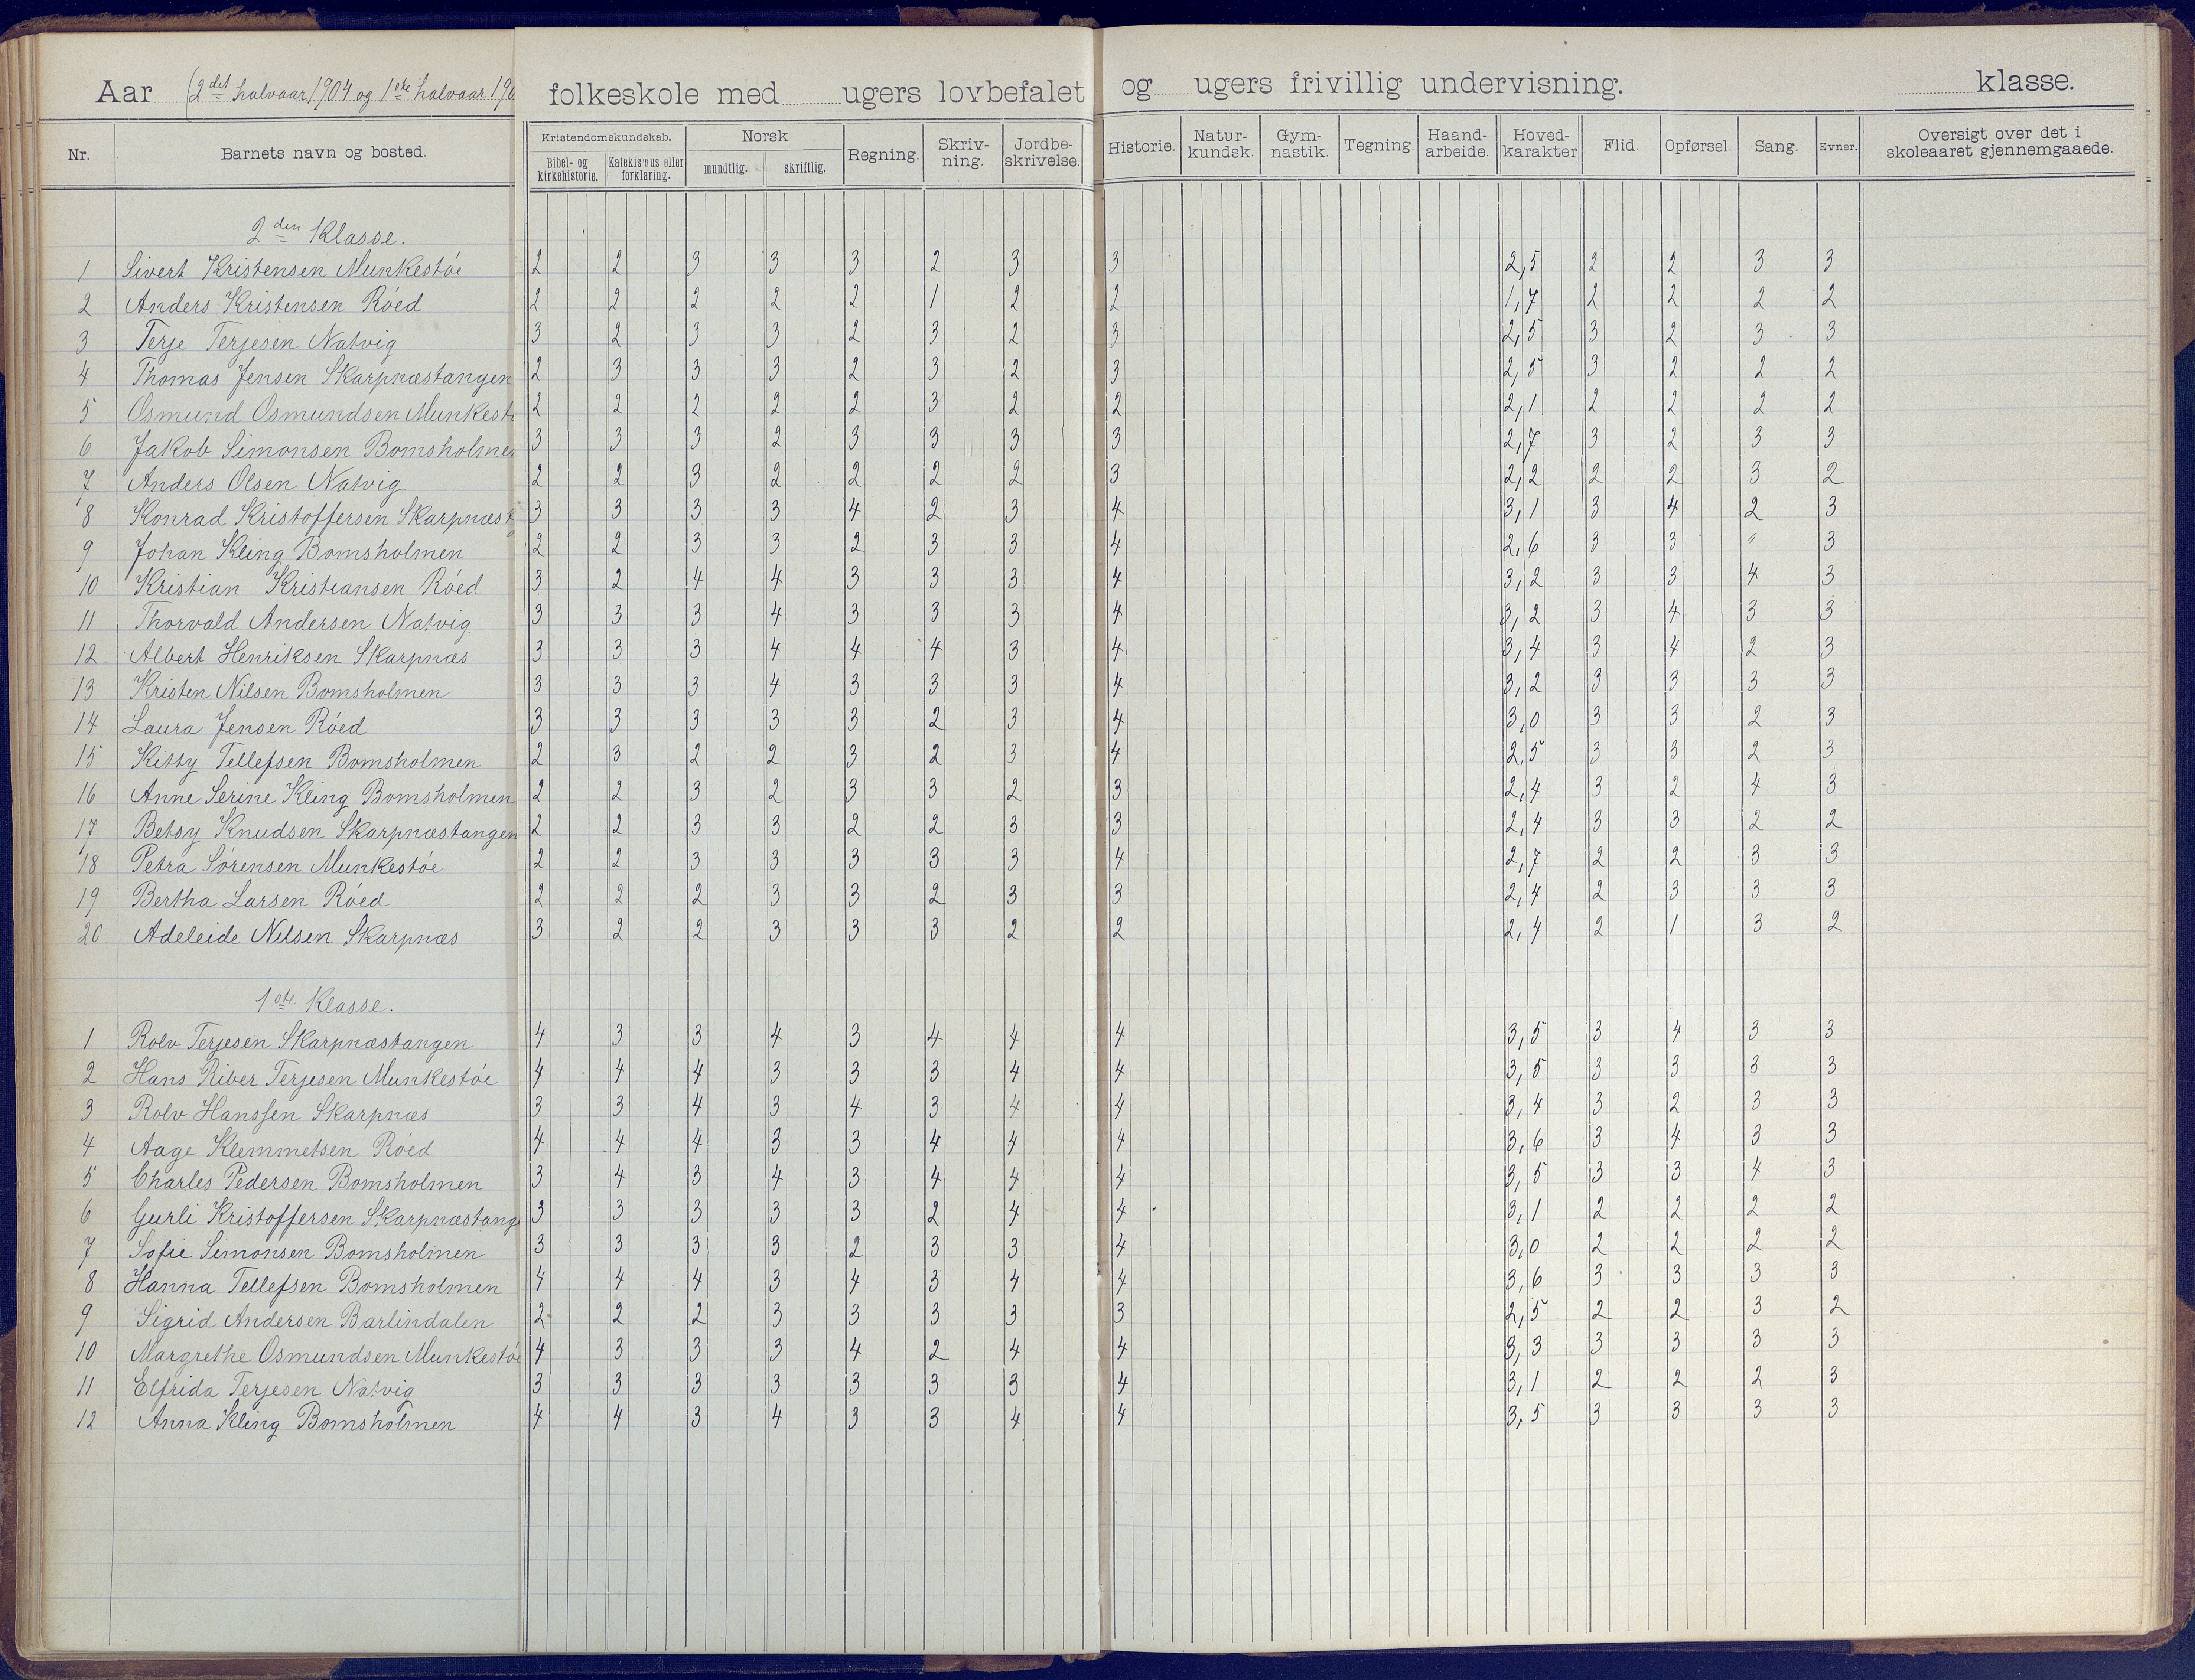 Aar (2det halvaar 1904 og 1ste halvaar 190 folkeskole med ugers lovbefalet og ugers frivillig undervisning. klasse.
Nr. Barnets navn og bosted. Kristendomskundskab. Bibel- og kirkehistorie. Katekismus eller forklaring. Norsk mundtlig. skriftlig. Regning. Skriv-ning. Jordbe-skrivelse. Historie. Natur-kundsk. Gym-nastik. Tegning. Haand-arbeide. Hoved-karakter Flid. Opførsel. Sang. Evner. Oversigt over det i skoleaaret gjennemgaaede.
2den Klasse.
1 Sivert Kristensen Munkestøe 2 2 3 3 3 2 3 3 2,5 2 2 3 3
2 Anders Kristensen Røed 2 2 2 2 2 1 2 2 1,7 2 2 2 2
3 Terje Terjesen Natvig 3 2 3 3 2 3 2 3 2,5 3 2 3 3
4 Thomas Jensen Skarpnæstangen 2 3 3 3 2 3 2 3 2,5 3 2 2 2
5 Osmund Osmundsen Munkestø 2 2 2 2 2 3 2 2 2,1 2 2 2 2
6 Jakob Simonsen Bomsholmen 3 3 3 2 3 3 3 3 2,7 3 2 3 3
7 Anders Olsen Natvig 2 2 3 2 2 2 2 3 2,2 2 2 3 2
8 Konrad Kristoffersen Skarpnæst 3 3 3 3 4 2 3 4 3,1 3 4 2 3
9 Johan Kling Bomsholmen 2 2 3 3 2 3 3 4 2,6 3 3 " 3
10 Kristian Kristiansen Røed 3 2 4 4 3 3 3 4 3,2 3 3 4 3
11 Thorvald Andersen Natvig 3 3 3 4 3 3 3 4 3,2 3 4 3 3
12 Albert Henriksen Skarpnæs 3 3 3 4 4 4 3 4 3,4 3 4 2 3
13 Kristen Nilsen Bomsholmen 3 3 3 4 3 3 3 4 3,2 3 3 3 3
14 Laura Jensen Røed 3 3 3 3 3 2 3 4 3,0 3 3 2 3
15 Kitty Tellefsen Bomsholmen 2 3 2 2 3 2 3 4 2,5 3 3 2 3
16 Anne Serine Kling Bomsholmen 2 2 3 2 3 3 2 3 2,4 3 2 4 3
17 Betsy Knudsen Skarpnæstangen 2 2 3 3 2 2 3 3 2,4 3 3 2 2
18 Petra Sørensen Munkestøe 2 2 3 3 3 3 3 4 2,7 2 2 3 3
19 Bertha Larsen Røed 2 2 2 3 3 2 3 3 2,4 2 3 3 3
20 Adeleide Nilsen Skarpnæs 3 2 2 3 3 3 2 2 2,4 2 1 3 2
1ste Klasse.
1 Rolv Terjesen Skarpnæstangen 4 3 3 4 3 4 4 4 3,5 3 4 3 3
2 Hans Riber Terjesen Munkestøe 4 4 4 3 3 3 4 4 3,5 3 3 3 3
3 Rolv Hanssen Skarpnæs 3 3 4 3 4 3 4 4 3,4 3 2 3 3
4 Aage Klemmetsen Røed 4 4 4 3 3 4 4 4 3,6 3 4 3 3
5 Charles Pedersen Bomsholmen 3 4 3 4 3 4 4 4 3,5 3 3 4 3
6 Gurli Kristoffersen Skarpnæstang 3 3 3 3 3 2 4 4 3,1 2 2 2 2
7 Sofie Simonsen Bomsholmen 3 3 3 3 2 3 3 4 3,0 2 2 2 2
8 Hanna Tellefsen Bomsholmen 4 4 4 3 4 3 4 4 3,6 3 3 3 3
9 Sigrid Andersen Barlindalen 2 2 2 3 3 3 3 3 2,5 2 2 3 2
10 Margrethe Osmundsen Munkestøe 4 3 3 3 4 2 4 4 3,3 3 3 3 3
11 Elfrida Terjesen Natvig 3 3 3 3 3 3 3 4 3,1 2 2 2 3
12 Anna Kling Bomsholmen 4 4 3 4 3 3 4 4 3,5 3 3 3 3